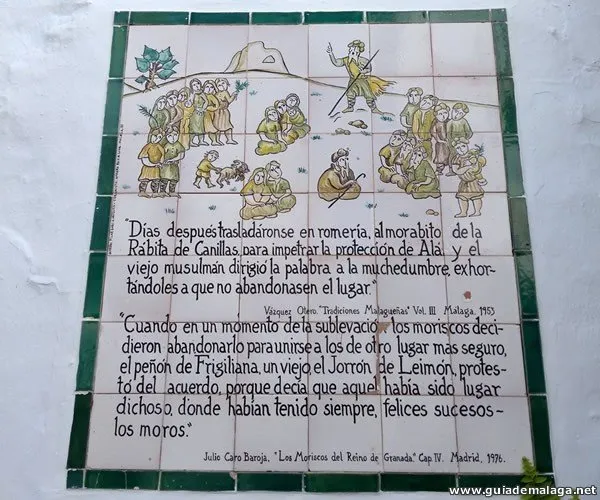 "Días después trasladáronse en romería, al morabito de la
Rábita de Canillas, para impetrar la protección de Alá y el
viejo musulmán dirigió la palabra a la muchedumbre, exhor-
tándoles a que no abandonasen el lugar."
Vázquez Otero. "Tradiciones Malagueñas" Vol. III. Málaga, 1953
"Cuando en un momento de la sublevació los moriscos deci-
dieron abandonarlo para unirse a los de otro lugar mas seguro,
el peñón de Frigiliana, un viejo, el Jorrón de Leimón, protes-
tó del acuerdo, porque decía que aquel había sido lugar
dichoso, donde habían tenido siempre, felices sucesos-
los moros."
Julio Caro Baroja, "Los Moriscos del Reino de Granada." Cap. IV. Madrid, 1976.
www.guiademalaga.net